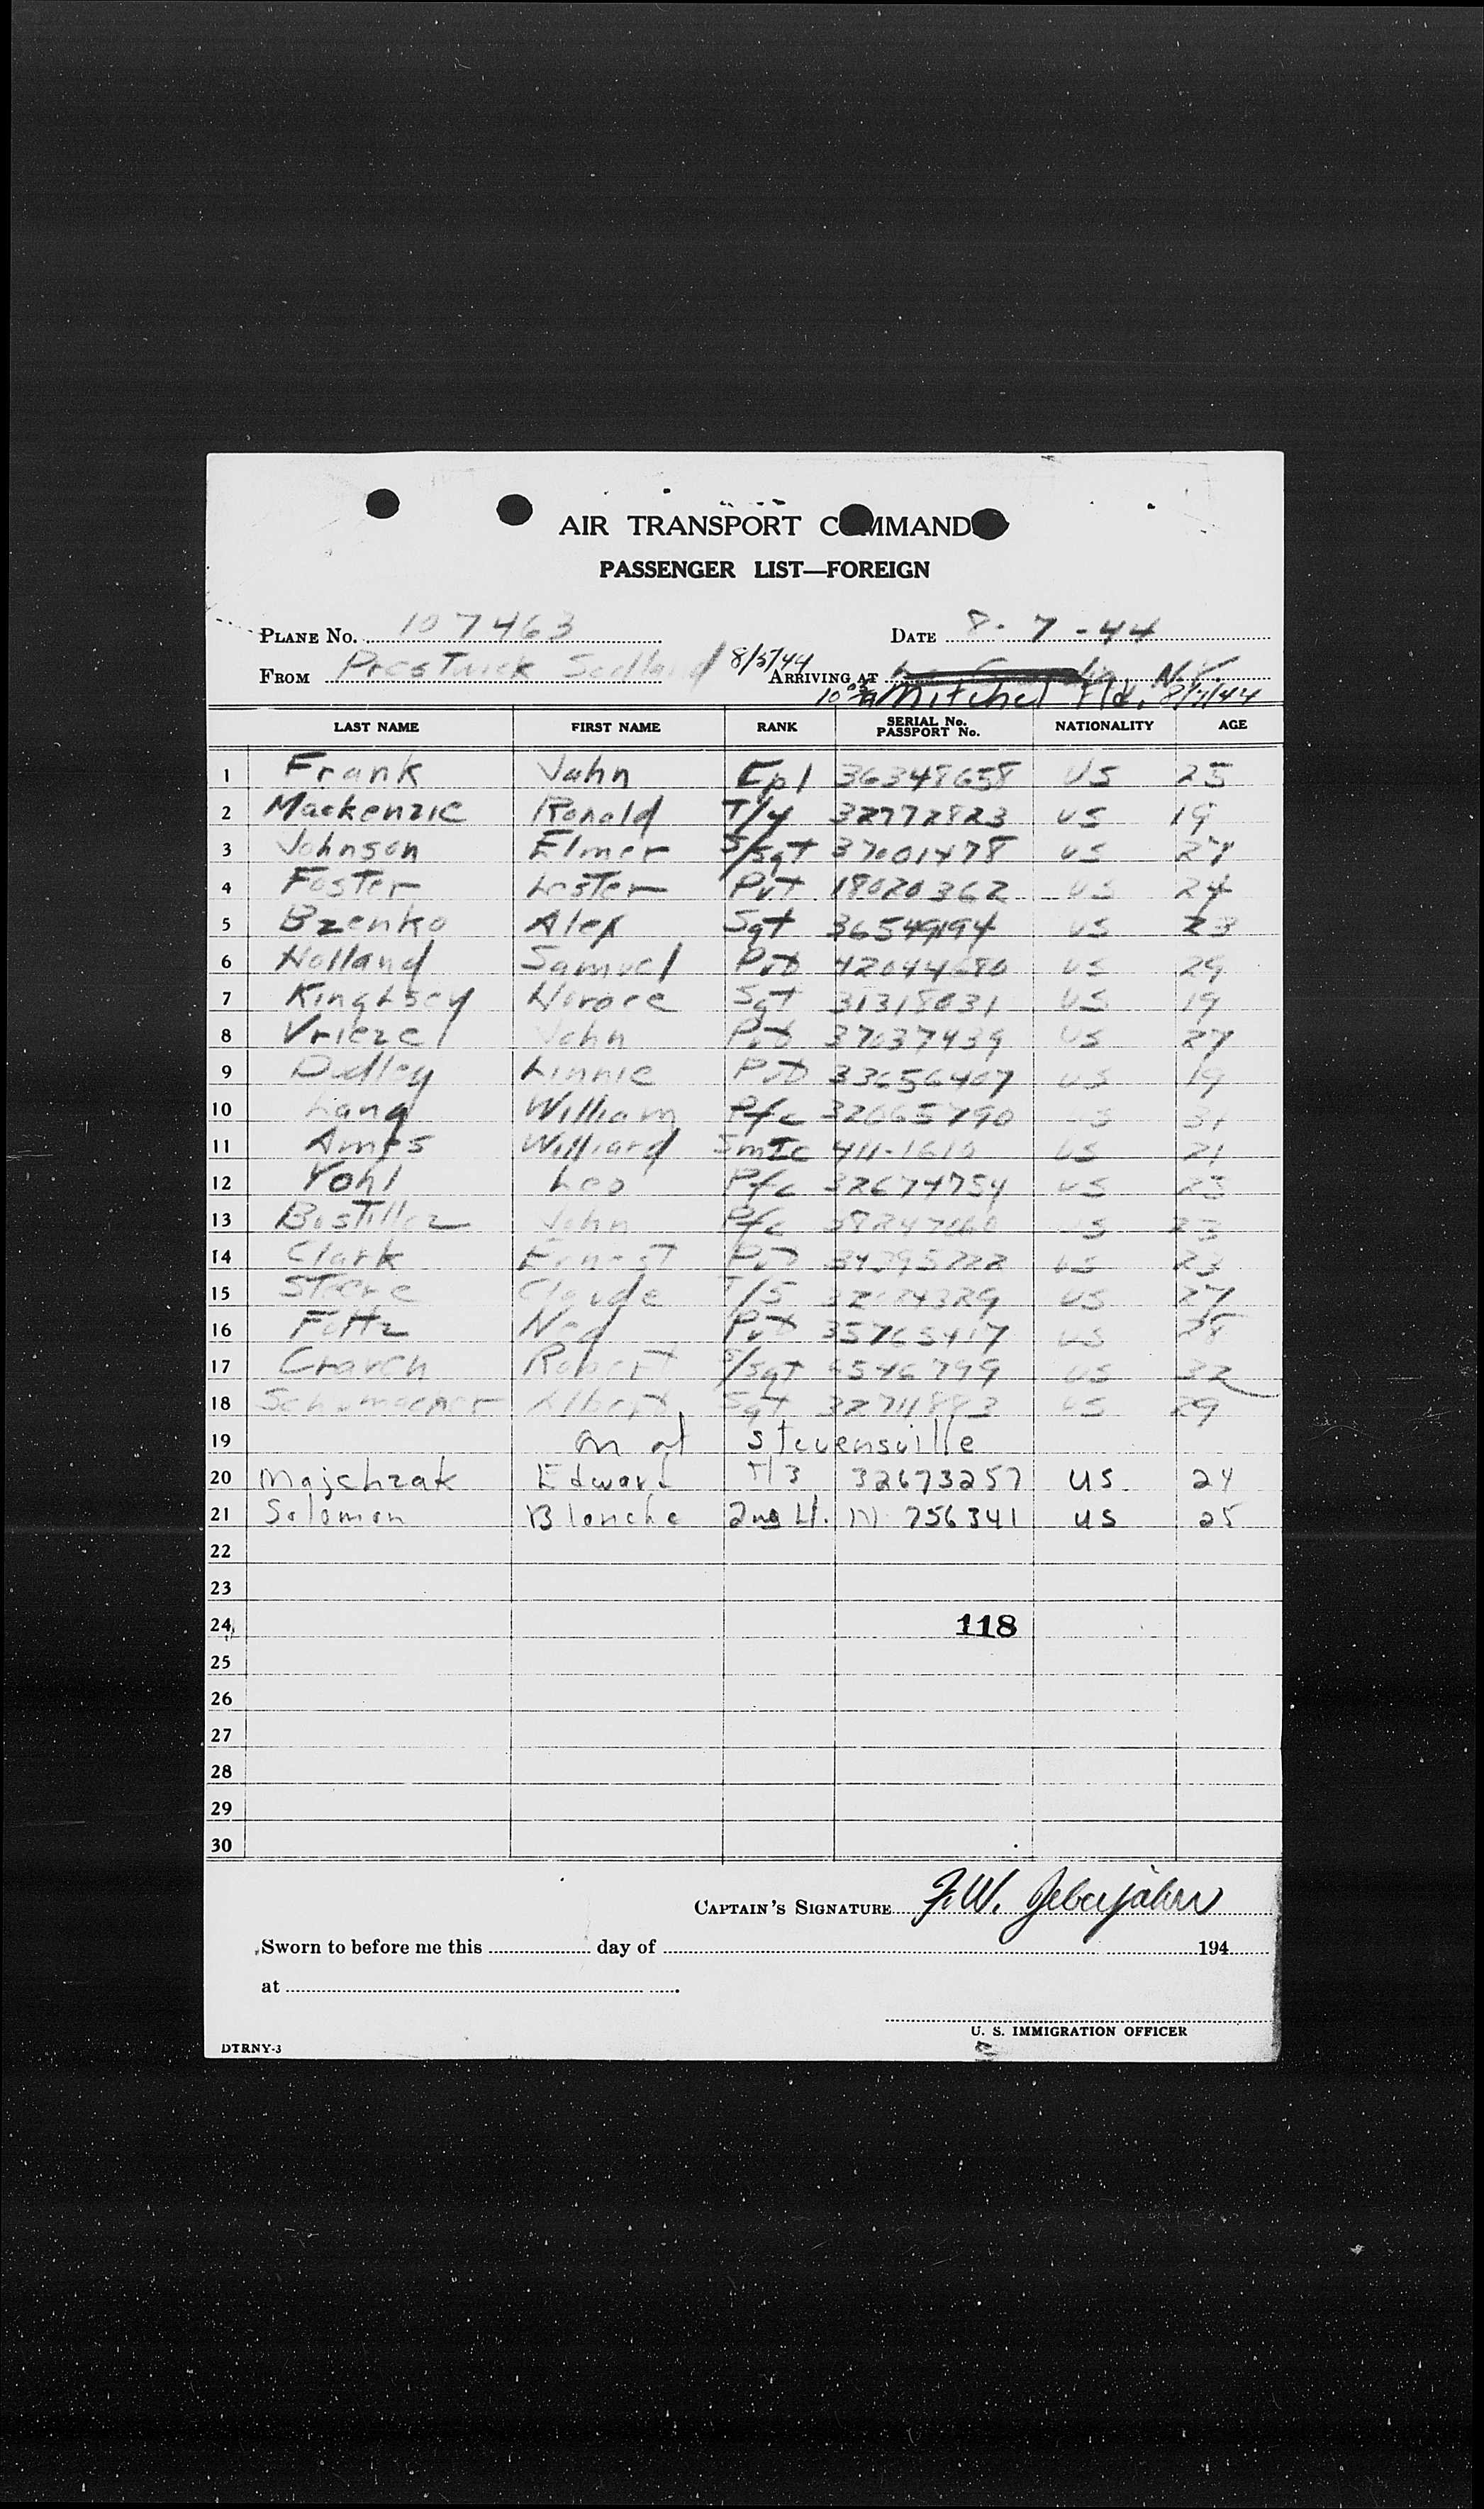 AIR TRANSPORT COMMAND
PASSENGER LIST—FOREIGN
PLANE No. 107463 DATE 8-7-44
FROM Prestwick Scotland 8/5/44 ARRIVING AT N.Y
Mitchel Fld. 8/7/44
LAST NAME FIRST NAME RANK SERIAL No. PASSPORT No. NATIONALITY AGE
1 Frank John Cpl 36348658 US 25
2 Mackenzie Ronald T/4 32772823 US 19
3 Johnson Elmer S/Sgt 37001478 US
4 Foster Lester Pvt 18020362 US 24
5 Bzenko Alex Sgt 36549194 US 23
6 Holland Samuel Pvt US 29
7 Horace Sgt 31318031 US 19
8 Vrieze John Pvt 37037439 US 27
9 Dudley Linnie Pvt 33656407 US 19
10 Lang William Pfc 32065790 US 31
11 Ames Williard 411-1610 US 21
12 Yohl Leo Pfc 32674754 US
13 John Pfc US 23
14 Clark Ernest Pvt US 23
15 Claude T/5 US 27
16 Ned Pvt 35765417 US
17 Craven Robert S/Sgt 6546799 US 32
18 Schumacher Albert Sgt 32711883 US 29
19 on at Stevensville
20 Majchzak Edward T/3 32673257 US 24
21 Solomon Blanche 2nd Lt. N 756341 US 25
22
23
24 118
25
26
27
28
29
30
CAPTAIN'S SIGNATURE F.W.
Sworn to before me this day of 194
at
U. S. IMMIGRATION OFFICER
DTRNY-3